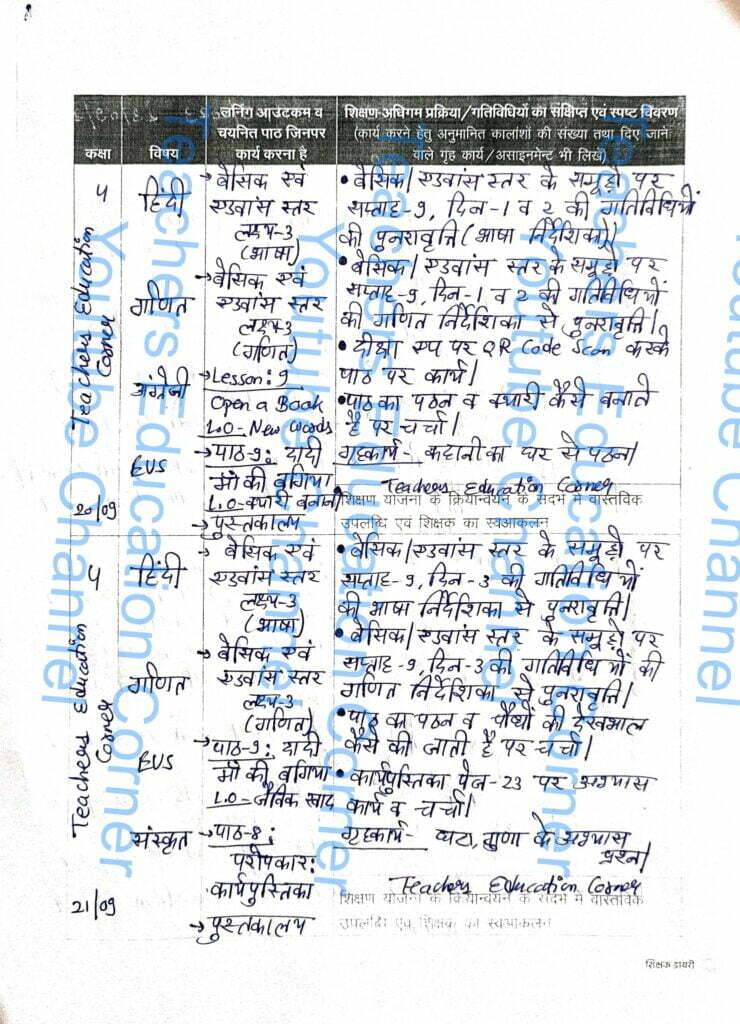 कक्षा
विषय
लर्निंग आउटकम व
चयनित पाठ जिनपर
कार्य करना है
शिक्षण-अधिगम प्रक्रिया/गतिविधियों का संक्षिप्त एवं स्पष्ट विवरण
(कार्य करने हेतु अनुमानित कालांशों की संख्या तथा दिए जाने
वाले गृह कार्य/असाइनमेंट भी लिखें)
५
हिंदी
→ बेसिक एवं
एडवांस स्तर
लक्ष्य-3
(भाषा)
• बेसिक/एडवांस स्तर के समूहों पर
सप्ताह-9, दिन-1 व 2 की गतिविधियों
की पुनरावृत्ति (भाषा निर्देशिका)/
गणित
→ बेसिक एवं
एडवांस स्तर
लक्ष्य-3
(गणित)
• बेसिक/एडवांस स्तर के समूहों पर
सप्ताह-9, दिन-1 व 2 की गतिविधियों
की गणित निर्देशिका से पुनरावृत्ति/
अंग्रेजी
→ Lesson: 9
Open a Book
L.O- New words
• दीक्षा एप पर QR Code Scan करके
पाठ पर कार्य/
EVS
→ पाठ-9: दादी
माँ की बगिया
L.O- क्यारी बनाना
→ पुस्तकालय
• पाठ का पठन व क्यारी कैसे बनाते
है पर चर्चा/
गृहकार्य- कहानी का घर से पठन/
Teachers Education Corner
20/09
शिक्षण योजना के क्रियान्वयन के संदर्भ में वास्तविक
उपलब्धि एवं शिक्षक का स्वआकलन
Teachers Education
Corner
५
हिंदी
→ बेसिक एवं
एडवांस स्तर
लक्ष्य-3
(भाषा)
• बेसिक/एडवांस स्तर के समूहों पर
सप्ताह-9, दिन-3 की गतिविधियों
की भाषा निर्देशिका से पुनरावृत्ति/
गणित
→ बेसिक एवं
एडवांस स्तर
लक्ष्य-3
(गणित)
• बेसिक/एडवांस स्तर के समूहों पर
सप्ताह-9, दिन-3 की गतिविधियों की
गणित निर्देशिका से पुनरावृत्ति/
EVS
→ पाठ-9: दादी
माँ की बगिया
L.O- जैविक खाद
• पाठ का पठन व पौधों की देखभाल
कैसे की जाती है पर चर्चा/
संस्कृत
→ पाठ-8:
परोपकार:
कार्यपुस्तिका
→ पुस्तकालय
• कार्यपुस्तिका पेज-23 पर अभ्यास
कार्य व चर्चा/
गृहकार्य- घटा, गुणा के अभ्यास
प्रश्न/
Teachers Education Corner
21/09
शिक्षण योजना के क्रियान्वयन के संदर्भ में वास्तविक
उपलब्धि एवं शिक्षक का स्वआकलन
Teachers Education
Corner
शिक्षक डायरी
Teachers Education Corner
Youtube Channel
Teachers Education Corner
Youtube Channel
Teachers Education Corner
Youtube Channel